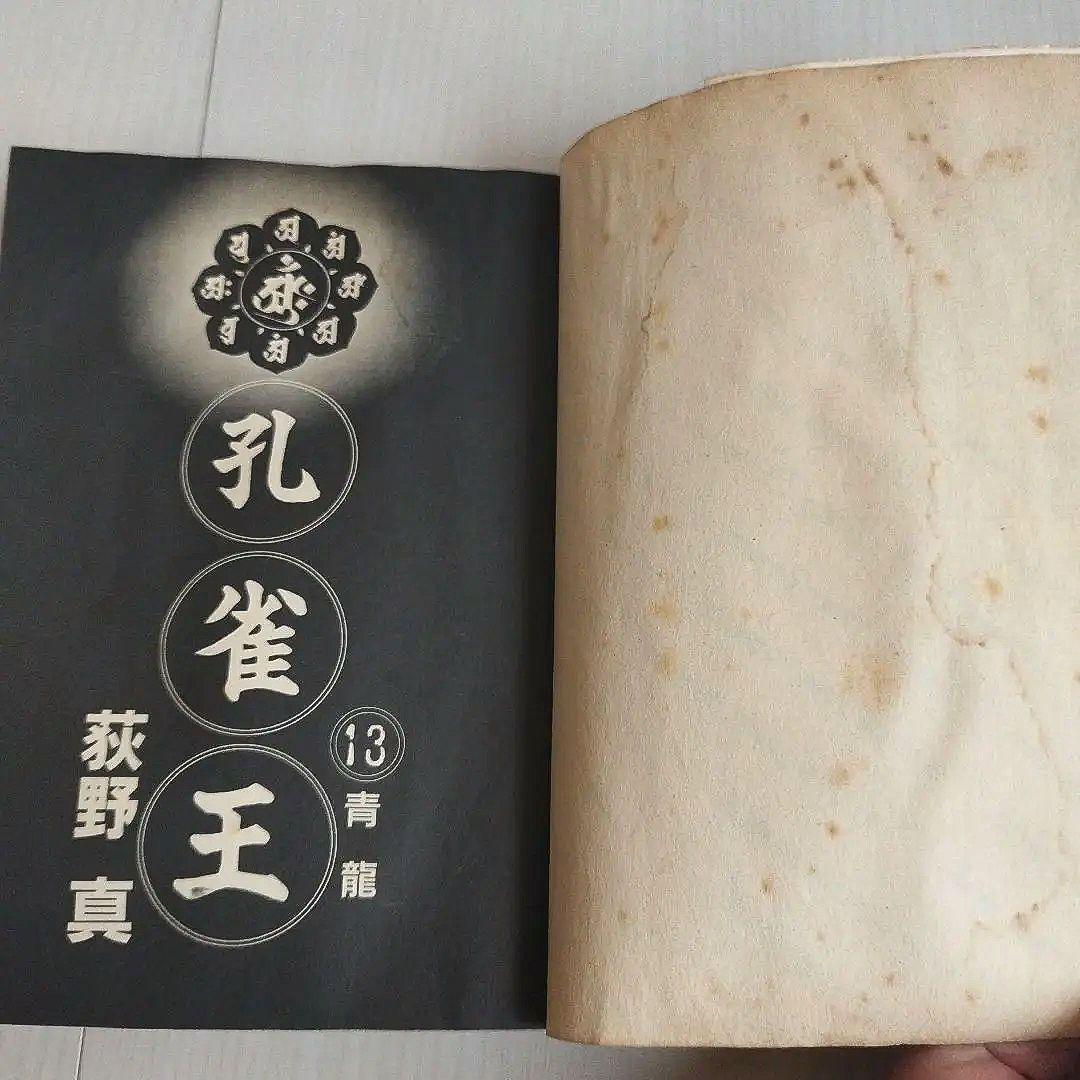 孔雀王
13
青龍
荻野真